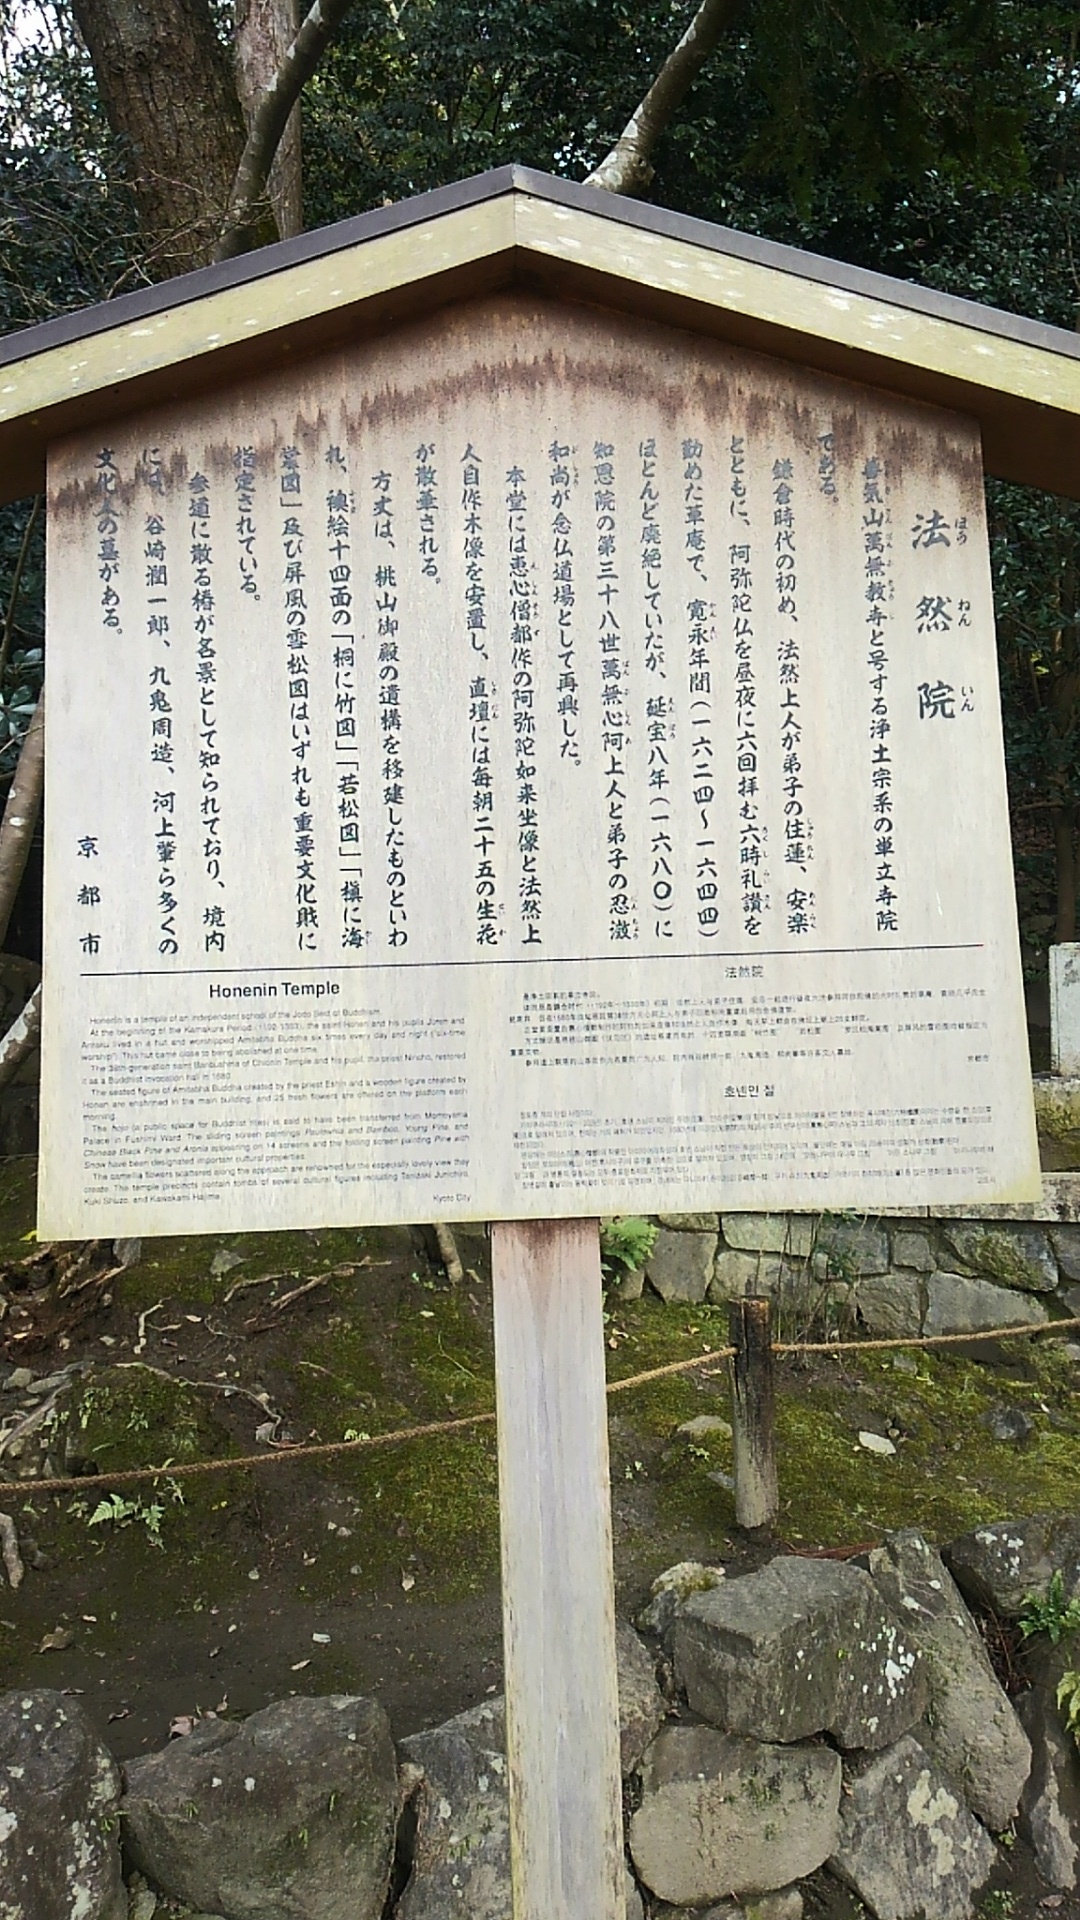 法然院
善気山萬無教寺と号する浄土宗系の単立寺院
である。
鎌倉時代の初め、法然上人が弟子の住蓮、安楽
とともに、阿弥陀仏を昼夜に六回拝む六時礼讃を
勤めた草庵で、寛永年間(一六二四〜一六四四)
ほとんど廃絶していたが、延宝八年(一六八〇)に
知恩院の第三十八世萬無心阿上人と弟子の忍澂
和尚が念仏道場として再興した。
本堂には恵心僧都作の阿弥陀如来坐像と法然上
人自作木像を安置し、直壇には毎朝二十五の生花
が散華される。
方丈は、桃山御殿の遺構を移建したものといわ
れ、襖絵十四面の「桐に竹図」「若松図」「槇に海
棠図」及び屏風の雪松図はいずれも重要文化財に
指定されている。
参道に散る椿が名景として知られており、境内
には、谷崎潤一郎、九鬼周造、河上肇ら多くの
文化人の墓がある。
京都市
Honenin Temple
Honenin is a temple of an independent school of the Jodo Sect of Buddhism.
At the beginning of the Kamakura Period (1192-1333), the saint Honen and his pupils Juren and
Anraku lived in a hut and worshipped Amitabha Buddha six times every day and night ("six-time
worship"). This hut came close to being abolished at one time.
The 38th-generation saint Banbushina of Chionin Temple and his pupil, the priest Nincho, restored
it as a Buddhist invocation hall in 1680.
The seated figure of Amitabha Buddha created by the priest Eshin and a wooden figure created by
Honen are enshrined in the main building, and 25 fresh flowers are offered on the platform each
morning.
The hojo (a public space for Buddhist rites) is said to have been transferred from Momoyama
Palace in Fushimi Ward. The sliding screen paintings Paulownia and Bamboo, Young Pine, and
Chinese Black Pine and Aronia appearing on 14 screens and the folding screen painting Pine with
Snow have been designated important cultural properties.
The camellia flowers scattered along the approach are renowned for the especially lovely view they
create. The temple precincts contain tombs of several cultural figures including Tanizaki Junichiro,
Kuki Shuzo, and Kawakami Hajime.
Kyoto City
法然院
京都市
호넨인 절